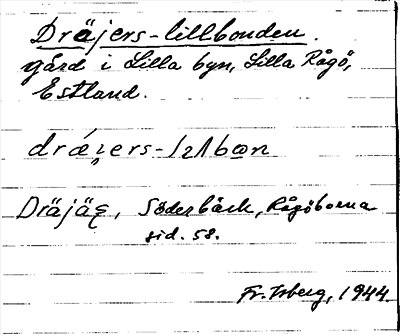 Dräjers-lillbonden.
gård i Lilla byn, Lilla Rågö,
Estland.
Dräjäs, Söderbäck, Rågöborna
sid. 58.
Fr. Isberg, 1944